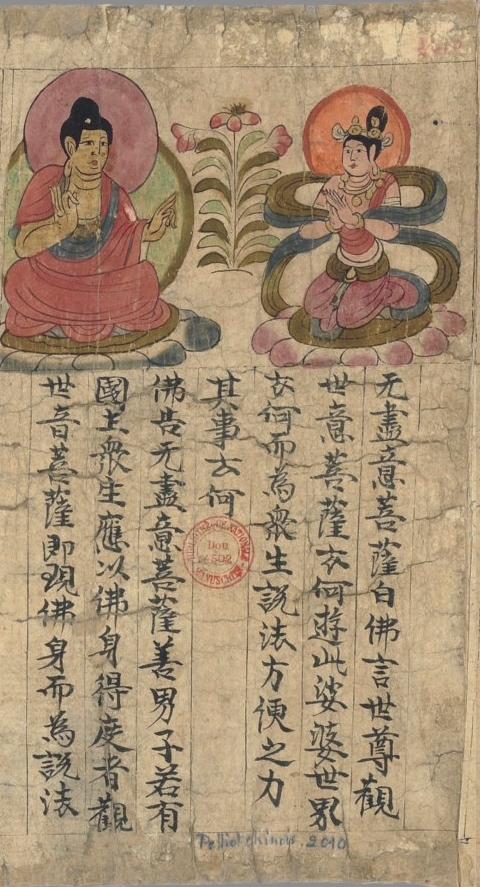 无盡意菩薩白佛言世尊觀
世意菩薩云何遊此娑婆世界
云何而為衆生說法方便之力
其事云何
佛告无盡意菩薩善男子若有
國土衆生應以佛身得度者觀
世音菩薩即現佛身而為說法
Don
Pelliot chinois 2010